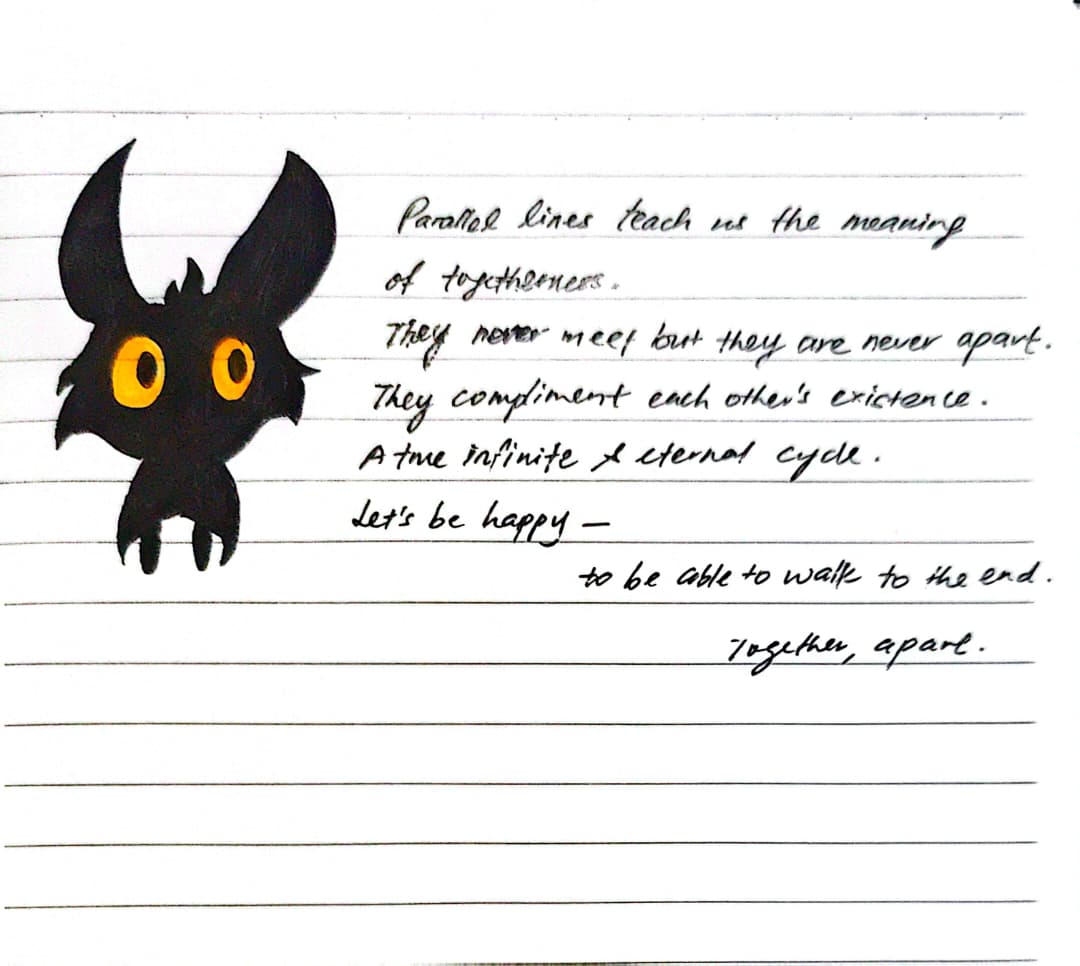 Parallel lines teach us the meaning
of togetherness.
They never meet but they are never apart.
They compliment each other's existence.
A true infinite & eternal cycle.
Let's be happy —
to be able to walk to the end.
Together, apart.